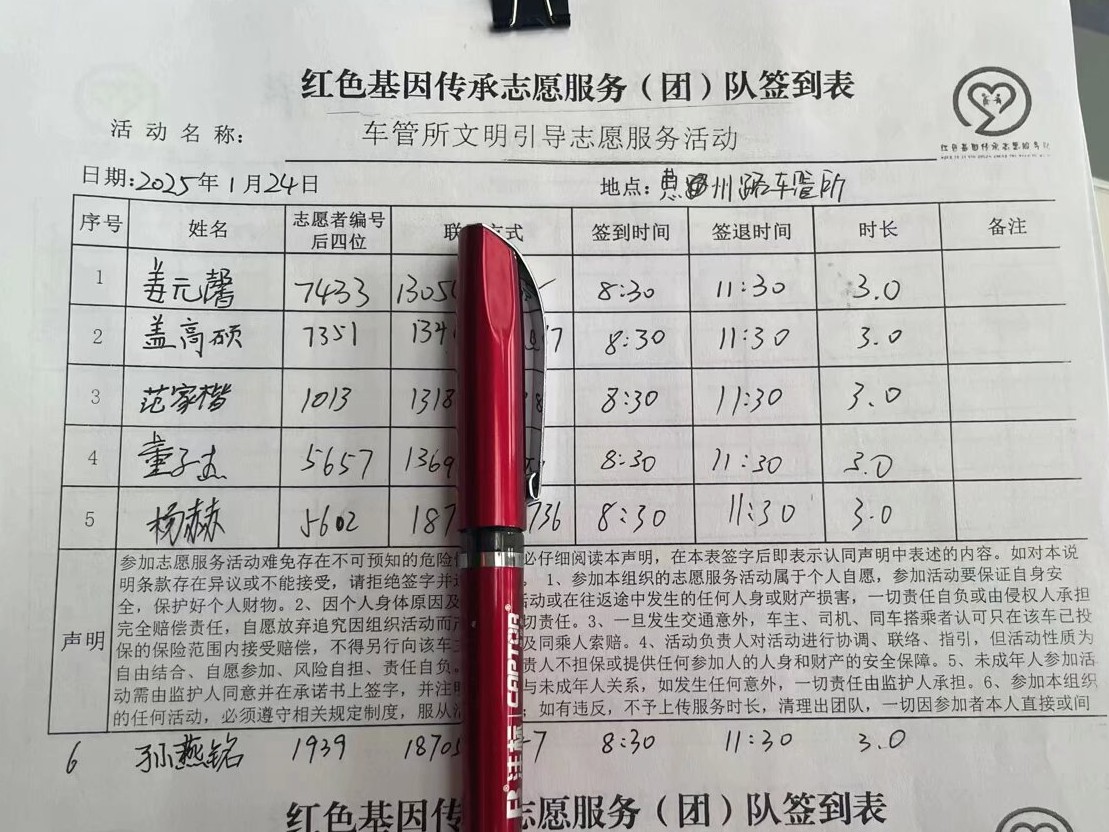 红色基因传承志愿服务（团）队签到表
活 动 名 称： 车管所文明引导志愿服务活动
红色基因传承志愿服务队
日期:2025年1月24日 地点: 州路车管所
序号 姓名 志愿者编号后四位 联 方式 签到时间 签退时间 时长 备注
1 姜元馨 7433 1305 8:30 11:30 3.0
2 盖高硕 7351 134 7 8:30 11:30 3.0
3 范家楷 1013 1318 8 8:30 11:30 3.0
4 董子杰 5657 1369 8:30 11:30 3.0
5 杨赫 5602 187 736 8:30 11:30 3.0
声明
参加志愿服务活动难免存在不可预知的危险 必仔细阅读本声明，在本表签字后即表示认同声明中表述的内容。如对本说
明条款存在异议或不能接受，请拒绝签字并 。 1、参加本组织的志愿服务活动属于个人自愿，参加活动要保证自身安
全，保护好个人财物。2、因个人身体原因及 活动或在往返途中发生的任何人身或财产损害，一切责任自负或由侵权人承担
完全赔偿责任，自愿放弃追究因组织活动而 切责任。3、一旦发生交通意外，车主、司机、同车搭乘者认可只在该车已投
保的保险范围内接受赔偿，不得另行向该车 及同乘人索赔。4、活动负责人对活动进行协调、联络、指引，但活动性质为
自由结合、自愿参加、风险自担、责任自负。 责人不担保或提供任何参加人的人身和财产的安全保障。5、未成年人参加活
动需由监护人同意并在承诺书上签字，并注 与未成年人关系，如发生任何意外，一切责任由监护人承担。6、参加本组织
的任何活动，必须遵守相关规定制度，服从 ；如有违反，不予上传服务时长，清理出团队，一切因参加者本人直接或间
6 孙燕铭 1939 18705 7 8:30 11:30 3.0
红色基因传 志愿服务（团）队签到表
注标 CAPTOR®